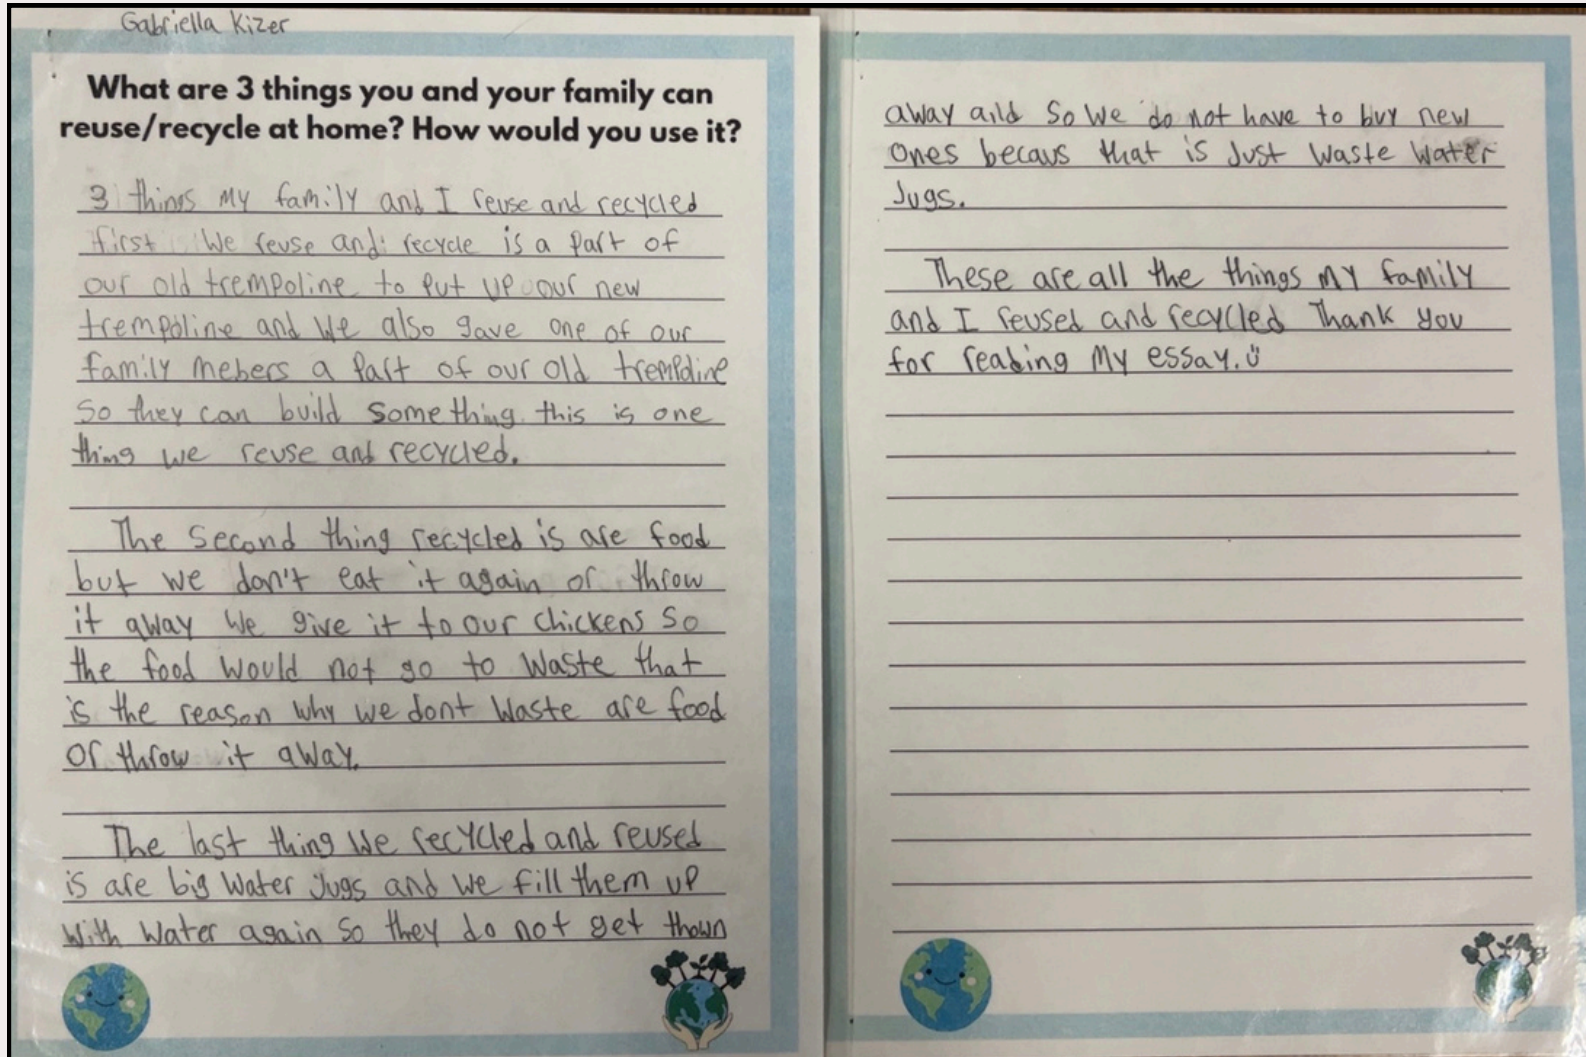 Gabriella Kizer
What are 3 things you and your family can
reuse/recycle at home? How would you use it?
3 things my family and I reuse and recycled
first We reuse and recycle is a part of
our old trempoline to put up our new
trempoline and We also gave one of our
family mebers a part of our old trempoline
so they can build something this is one
thing we reuse and recycled.
The second thing recycled is are food
but we don't eat it again or throw
it away We give it to our chickens so
the food would not go to waste that
is the reason why we dont waste are food
or throw it away.
The last thing We recycled and reused
is are big water jugs and we fill them up
with water again so they do not get thown
away and So We do not have to buy new
ones becaus that is Just waste water
Jugs.
These are all the things my family
and I reused and recycled Thank you
for reading my essay.